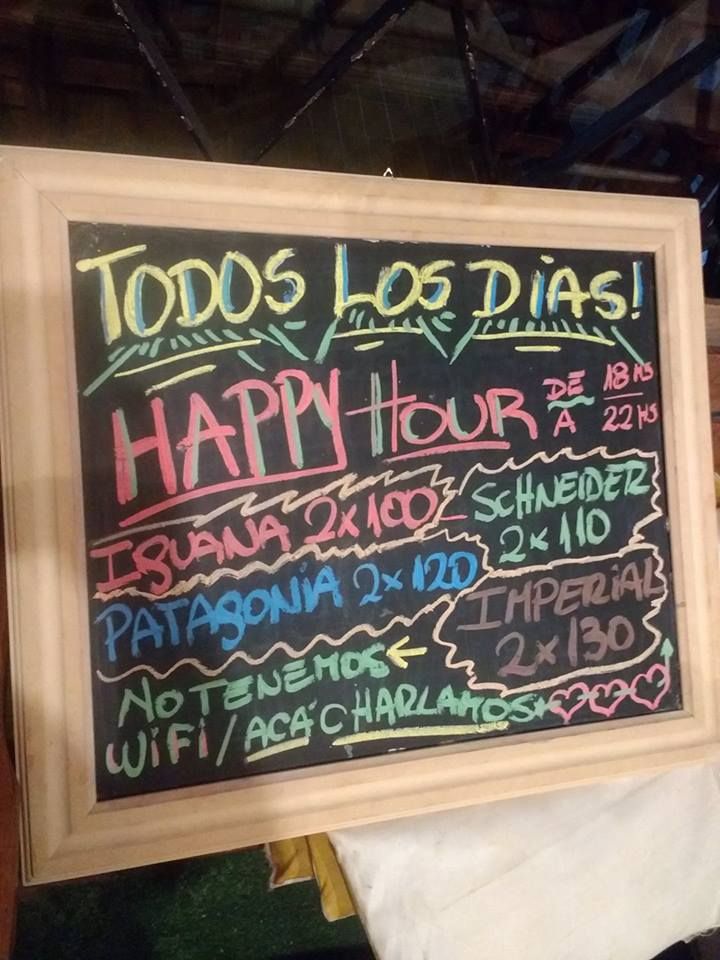 TODOS LOS DiAS!
HAPPY HOUR DE 18 HS
A 22 HS
IGUANA 2x100
SCHNEIDER
2x110
PATAGONiA 2x120
IMPERiAL
2x130
NO TENEMOS ←
WiFi / ACÁ CHARLAMOS